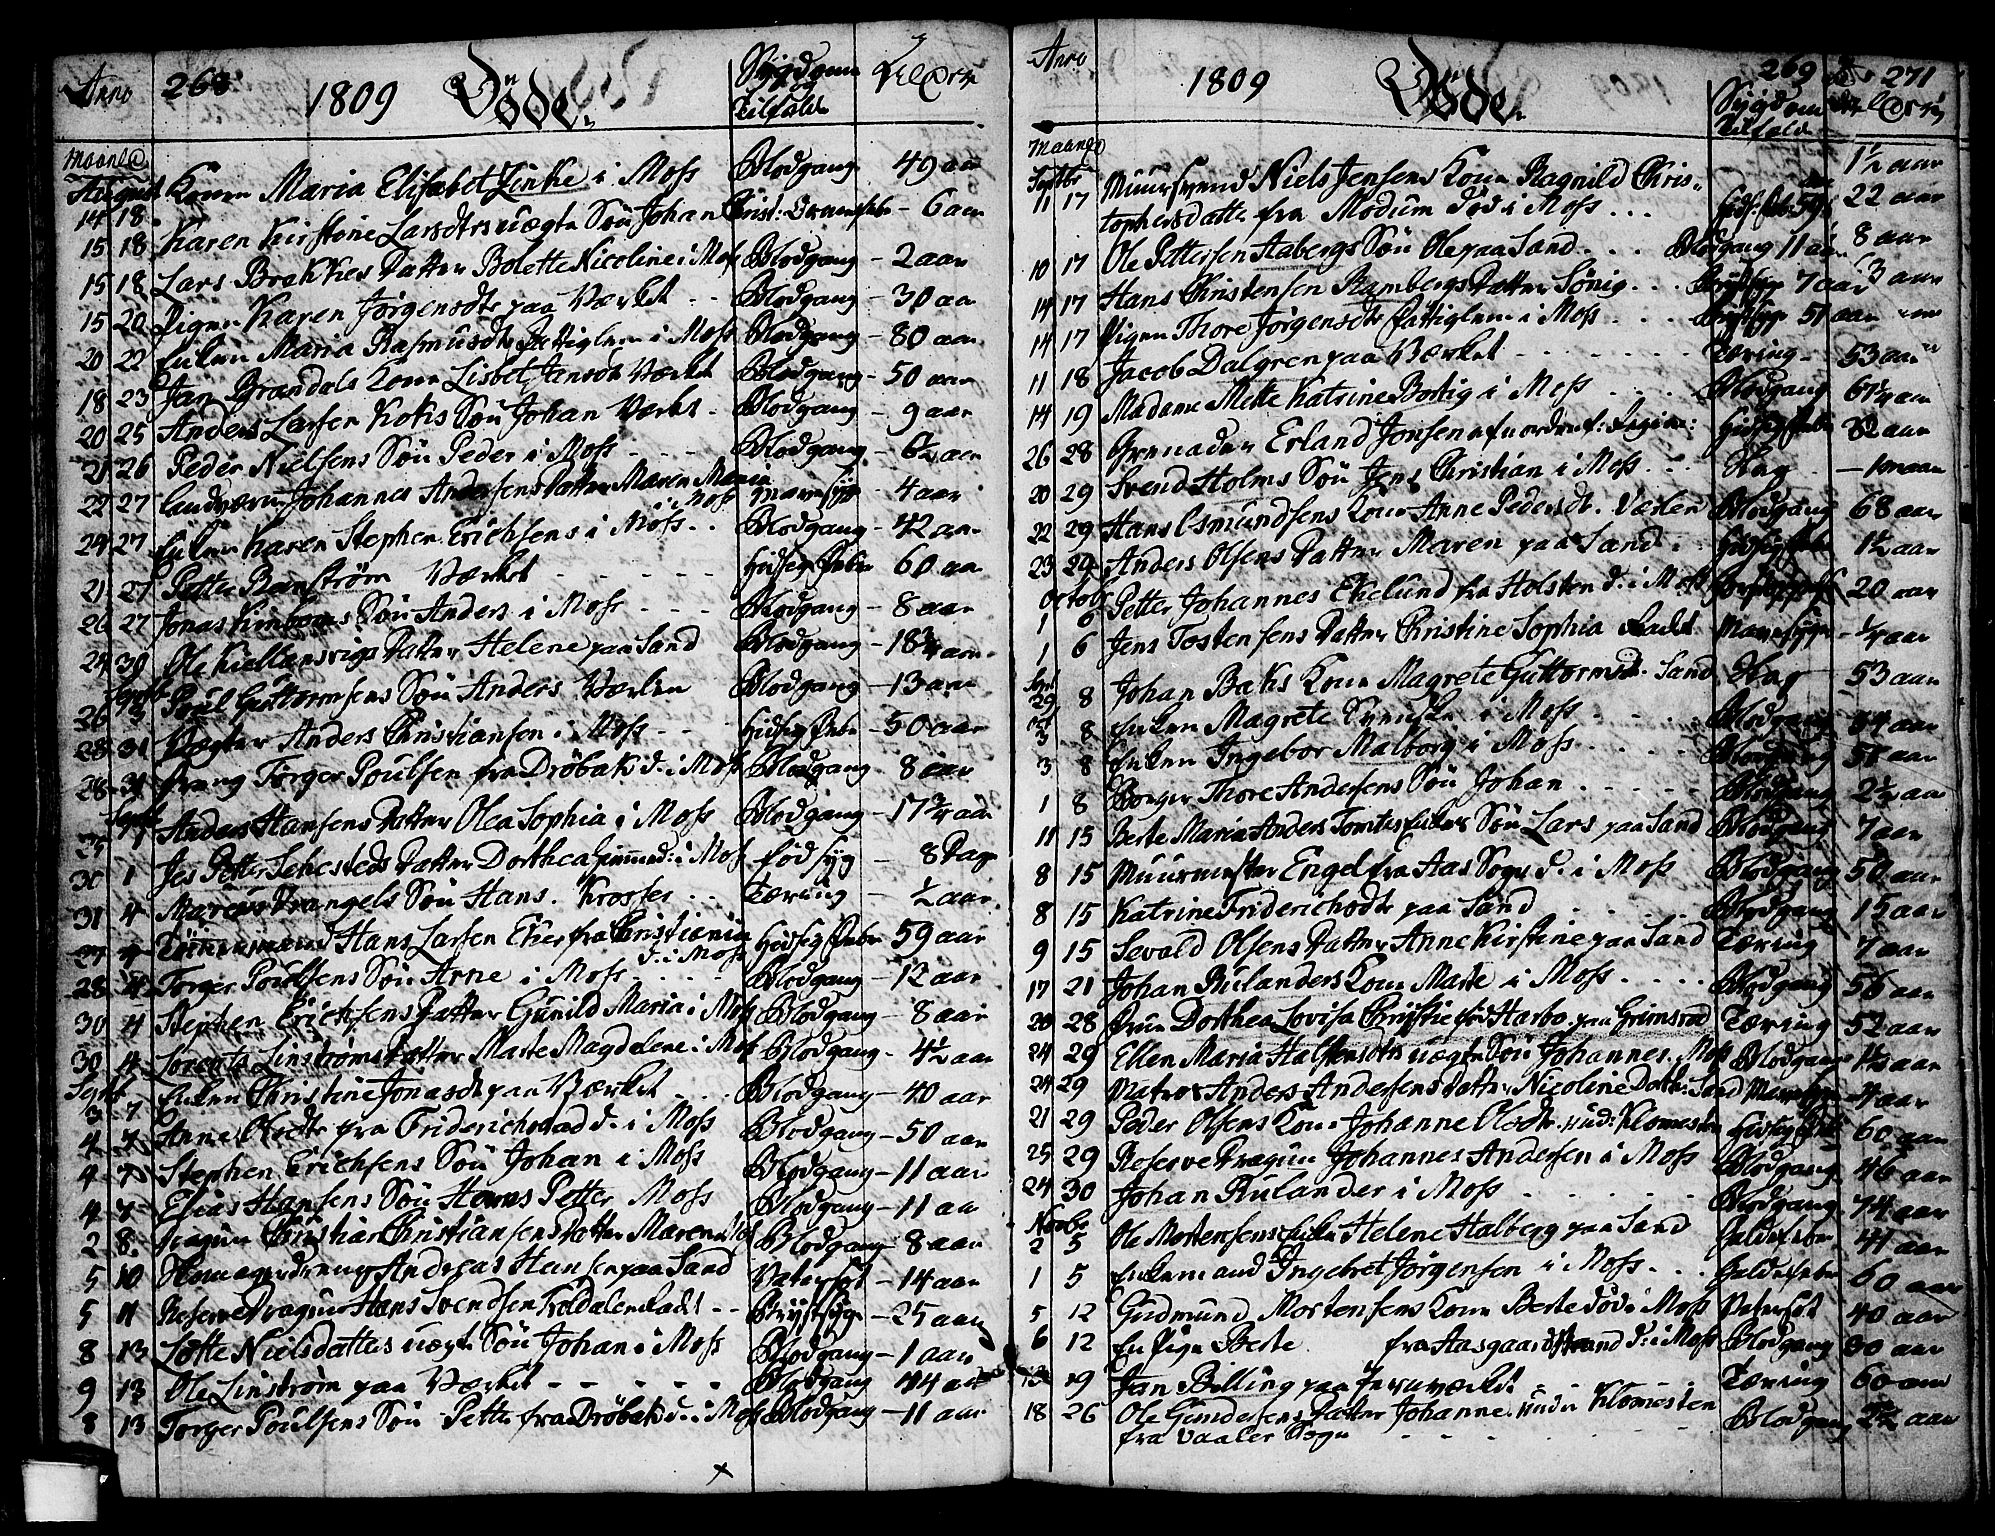 Anno 268 1809 Døde. Sygdom og Tilfælde Al@rn
Maaned
August Konen Maria Elisabet Linke i Moss Blodgang 49 aar
14 18. Karen Kirstine Larsdtrs uægte Søn Johan Christ: 6 aar
15 18 Lars Brekkes Datter Bolette Nicoline i Moss Blodgang - 2 aar
15 18 Pigen Karen Jørgensdtr paa Værket - - Blodgang - 30 aar
15 20 Enken Maria Rasmusdtr Fattiglem i Moss Blodgang - 80 aar
20 22 Jan Brandals Kone Lisbet Jansdtr Værket Blodgang - 50 aar
18 23 Anders Larsen Koks Søn Johan Værket - Blodgang - 9 aar
20 25 Peder Nielsens Søn Peder i Moss - - - Blodgang - 6½ aar
21 26 Landværn Johannes Andersens Datter Maren Maria i Moss - 4 aar
22 27 Enken Karen Stephen Erichsens i Moss - - Blodgang - 42 aar
24 27 Petter Banstrøm Værket - - - - - Hidsig Feber 60 aar
21 27 Jonas Kinboms Søn Anders i Moss - - - Blodgang - 8 aar
26 27 Ole Kiellansvigs Datter Helene paa Sand Blodgang - 18¾ aar
24 30 Poul Guttormsens Søn Anders Værlen Blodgang - 13 aar
Septb
26 3 Vægter Anders Christiansen i Moss - - Hidsig Feber - 50 aar
28 31 Dreng Torger Poulsen fra Drøbak d. i Moss Blodgang - 8 aar
28 31
Septb Anders Hansens Datter Olea Sophia i Moss Blodgang - 17¾ aar
29 1 Jes Petter Sehesteds Datter Dorthea hjemmed: i Moss fød syg - 8 Dage
30 1 Marcus Vrangels Søn Hans. Krosser - - Tæring - ½ aar
31 4 Hans Larsen Eker fra Christiania d. i Moss Hidsig Feber 59 aar
27 4 Torger Poulsens Søn Arne i Moss - - - Blodgang - 12 aar
28 4 Stephen Erichsens Datter Gunild Maria i Moss Blodgang - 8 aar
30 4 Lorents Linstrøms Datter Marte Magdelene i Moss Blodgang - 4½ aar
30 4 Enken Christine Jonasdtr paa Værket - - Blodgang - 40 aar
Septb
3 7 Anne Olsdtr fra Friderichstad d. i Moss Blodgang - 50 aar
4 7 Stephen Erichsens Søn Johan i Moss Blodgang - 11 aar
4 7 Elias Hansens Søn Hans Petter Moss Blodgang - 11 aar
4 7 Dragun Christian Christiansens Datter Maren Moss Blodgang - 8 aar
2 8. Andreas Hansen paa Sand Vatersot - 14 aar
5 10 Reserve Dragun Hans Svendsen Troldalen Ladt - - Brystsyge - 25 aar
5 11 Lotte Nielsdatters uægt Søn Johan i Moss Blodgang - 1 aar
8 13 Ole Linstrøm paa Værket - - - - - Blodgang - 44 aar
9 13 Torger Poulsens Søn Petter fra Drøbak d. i Moss Blodgang - 11 aar
8 13
x
Anno 1809 Døde. 269 271 Sygdom Tilfælde Al@rn
Maaned
Septbr Muursvend Niels Jensens Kone Ragnild Chris- 1½ aar
11 17 tophersdatter fra Modum død i Moss . . . Hidsigfeber 59 22 aar
10 17 Ole Pettersen Aabergs Søn Ole paa Sand . . . Blodgang 11 aar 8 aar
14 17 Hans Christensen Rambergs Datter Sønig . . . Brystsyge 7 aar 3 aar
14 17 Pigen Thore Jørgensdtr Fattiglem i Moss . . . Brystsyge 51 aar
11 18 Jacob Dalgren paa Værket . . . Tæring - 53 aar
14 19 Madame Mette Katrine Bortig i Moss . . . Blodgang 61¼ aar
26 28 Grenader Erland Jonsen af nordenf: Regim: Hidsigfeber 32 aar
20 29 Svend Holms Søn Jens Christian i Moss . . . Slag
22 29 Hans Osmundsens Kone Anne Pedersdtr. Værlen Blodgang 68 aar
23 29 Anders Olsens Datter Maren paa Sand . . Hidsigfeber 1½ aar
Octobr Petter Johannes Ekelund fra Holsten d. i Moss 20 aar
1 6 Jens Tostensens Datter Christine Sophia Ladet Mavesyge ¼ aar
1 6
Septbr
29 8 Johan Baks Kone Magrete Guttormsd. Sand Slag 53 aar
2 8 Enken Magrete Svenske i Moss - - - Blodgang 54 aar
3 8 Enken Ingebor Malborg i Moss . . . Blodgang 58 aar
1 8 Borger Thore Andersens Søn Johan . . . Blodgang 2½ aar
11 15 Berte Maria Anders Tomtes Enkes Søn Lars paa Sand Blodgang 7 aar
8 15 Muurmester Engel fra Aas Sogn d. i Moss Blodgang 50 aar
8 15 Katrine Friderichsdtr paa Sand . . . Blodgang 15 aar
9 15 Sevald Olsens Datter Anne Kirstine paa Sand Tæring 7 aar
17 21 Johan Rulanders Kone Marte i Moss . . . . Blodgang 56 aar
20 28 Frue Dorthea Lovisa Christie fød Harbo paa Grimsrød Tæring 52 aar
24 29 Ellen Maria Halstensdtrs uægte Søn Johannes Moss Blodgang 1½ aar
24 29 Matros Anders Andersens Datter Nicoline Dorthe: Sand Mavesyge 4 aar
21 29 Peder Olsens Kone Johanne Olsdtr. und: Klommesten Hidsigfeb: 60 aar
25 29 Reserve Dragun Johannes Andersen i Moss Blodgang 46 aar
24 30 Johan Rulander i Moss . . . . Blodgang 74 aar
Novbr
2 5 Ole Mortensens Enke Helene Halberg paa Sand Galdefeber 41 aar
1 5 Enkemand Ingebret Jørgensen i Moss . . . Galdefeber 60 aar
5 12 Gudmund Mortensens Kone Berte død i Moss Vatersot 40 aar
6 12 En Pige Berte fra Aasgaardstrand d: i Moss Blodgang 30 aar
13 19 Jan Billing paa Jernværket . . Tæring 60 aar
18 26 Ole Gundersens Datter Johanne. under Klomesten Blodgang 2½ aar
fra Vaaler Sogn - - - - -